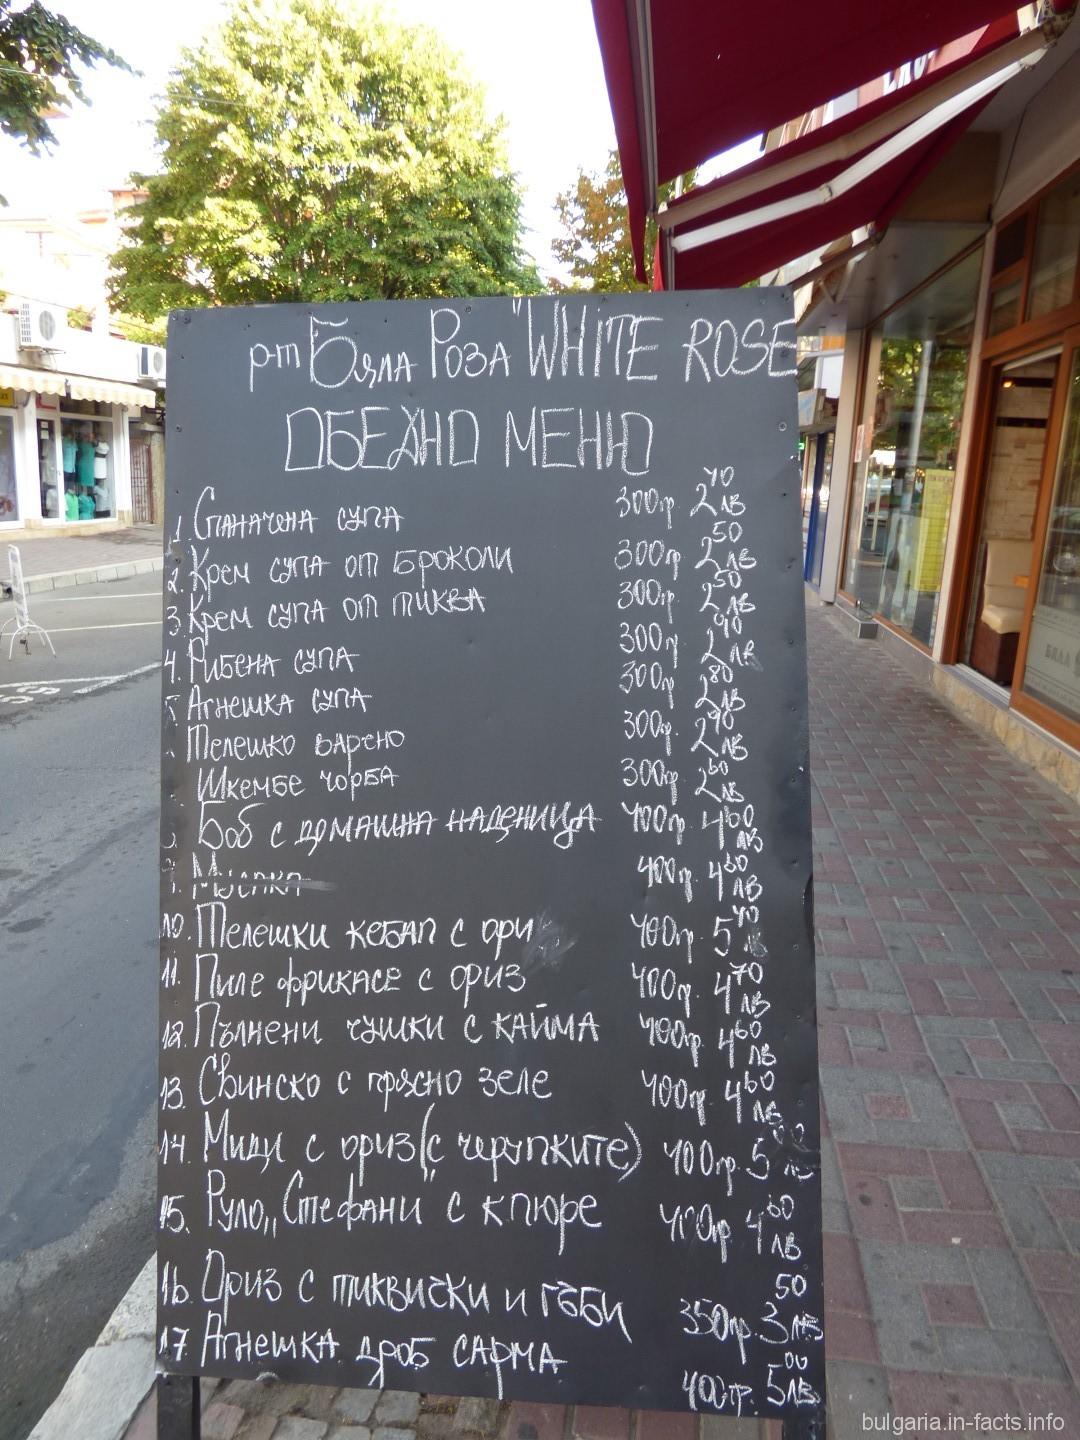 р-т Бяла Роза "WHITE ROSE
ОБЕДНО МЕНЮ
1. Спаначена супа 300гр. 2 40 лв
2. Крем супа от Броколи 300гр. 2 50 лв
3. Крем супа от тиква 300гр. 2 50 лв
4. Рибена супа 300гр. 2 90 лв
5 Агнешка супа 300гр. 2 80 лв
Телешко варено 300гр. 2 90 лв
Шкембе чорба 300гр. 2 60 лв
Боб с домашна наденица 400гр. 4 60 лв
Мусака 400гр. 4 60 лв
10. Телешки кебап с ори 400гр. 5 40
11. Пиле фрикасе с ориз 400гр. 4 70 лв
12. Пълнени чушки с кайма 400гр. 4 60 лв
13. Свинско с прясно зеле 400гр. 4 60 лв
14. Миди с ориз (с черупките) 400гр. 5 лв
15. Руло „Стефани" с к пюре 4 60 лв
16. Ориз с тиквички и гъби 350гр. 3 50 лв
17. Агнешка дроб сарма 400гр. 5 00 лв.
bulgaria.in-facts.info